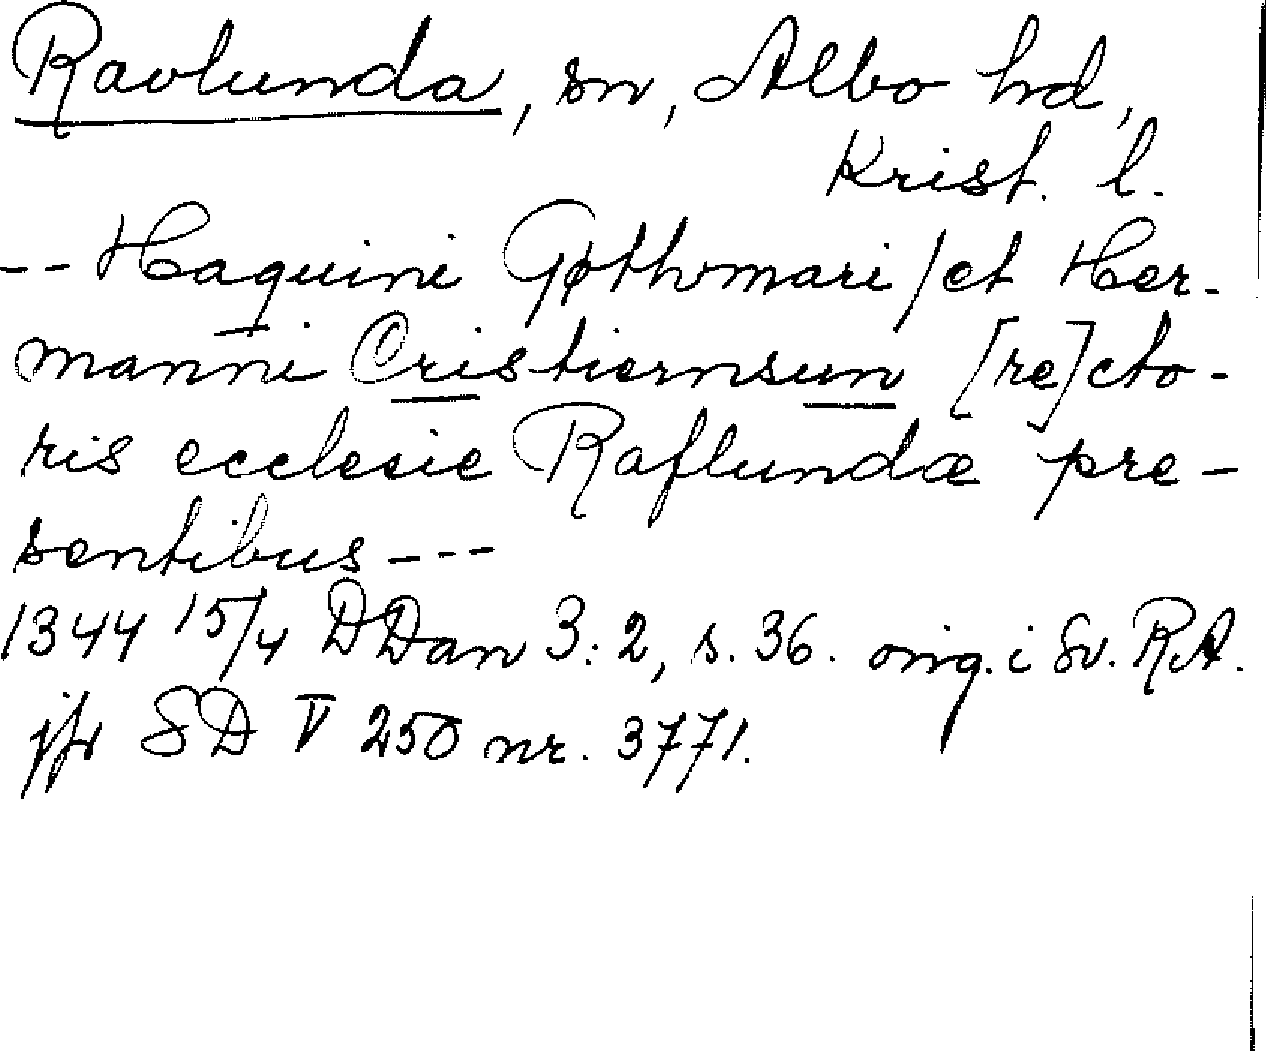 Ravlunda, sn, Albo hd,
Krist. l.
-- Haquini Gøthomari / et Her-
manni Cristiernsun [re]cto-
ris ecclesie Raflundæ pre-
sentibus ---
1344 15/4 DDan 3:2, s. 36. orig. i Sv. RA.
jfr SD V 250 nr. 3771.